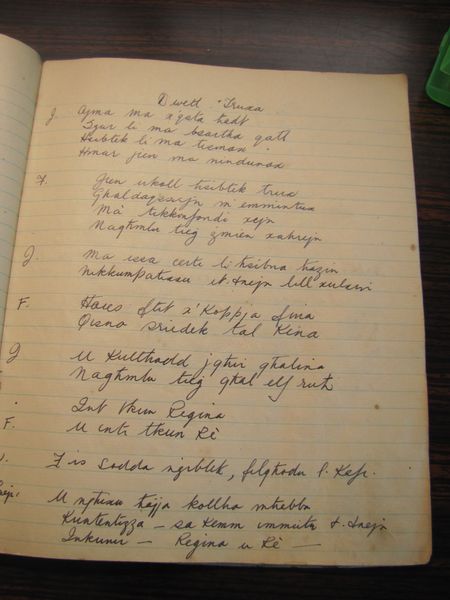 Duett. Truxa
J. Ajma ma x'qata hadt
Izjur li ma bsartha qatt
Hsibtek li ma tismax
Hmar jien ma nindunax
F. Jien ukoll hsibtek trux
Ghaldaqsxejn m'emmintux
Ma tikkonfondi xejn
Naghmlu tieg zmien sahrejn
J. Ma issa certi li hsibna hazin
nikkumpatixxu it-tnejn lill xulxin
F. Hares ftit x'koppja fina
Qisna sriedek tal Kina
J u kulhadd jghir ghalina
Naghmlu tieg ghal elf ruh
Int tkun Regina
F. u inti tkun Rè
J is sodda ngiblek, filghodu l. Kafe.
u nghixu hajja kollha mhabba
Kuntentizza - sa kemm immutu t-tnejn
Inkunu - Regina u Rè -